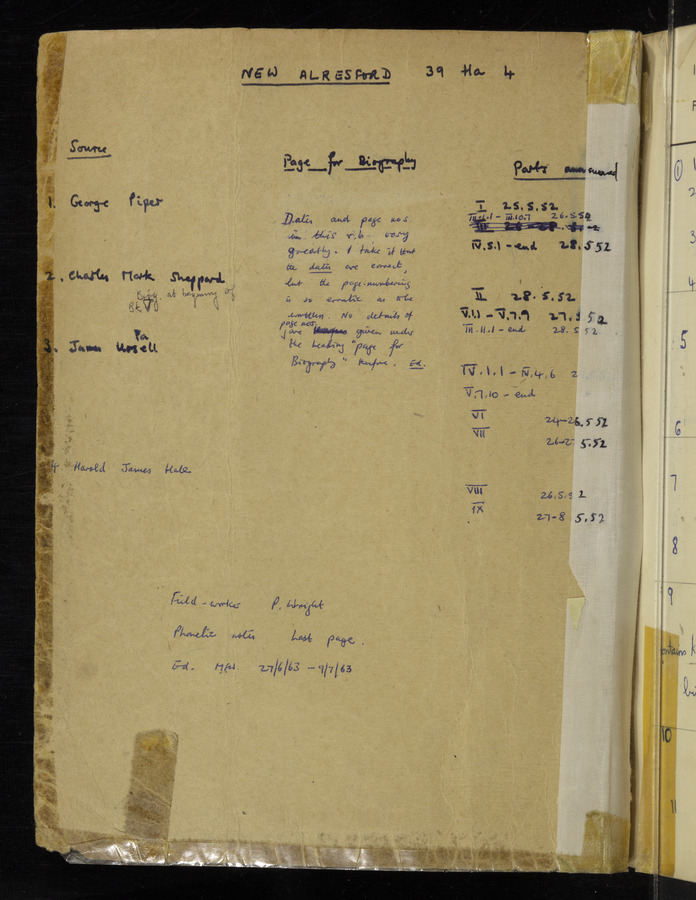 NEW ALRESFORD 39 Ha 4
Source
Page for Biography
Parts answered
1. George Piper
I 25.5.52
26.5.52
IV.5.1 - end 28.5.52
Dates and page nos
in this r.b. vary
greatly. I take it that
the dates are correct,
but the page-numbering
is so erratic as to be
worthless. No details of
page nos. are given under
the heading "page for
Biography" therefore. Ed.
2. Charles Mark Sheppard
Biog. at beginning of
Bk V
II 28.5.52
V.1.1 - V.7.9 27.5.52
III.11.1 - end 28.5.52
3. James Pa
Ursell
IV.1.1 - IV.4.6 2
V.7.10 - end
VI 24-26.5.52
VII 26-27 5.52
4 Harold James Hale
VIII 26.5.52
IX 27-8 5.52
Field-worker P. Wright
Phonetic notes last page.
Ed. 27/6/63 - 9/7/63
1
2
3
4
5
6
7
8
9
10
11